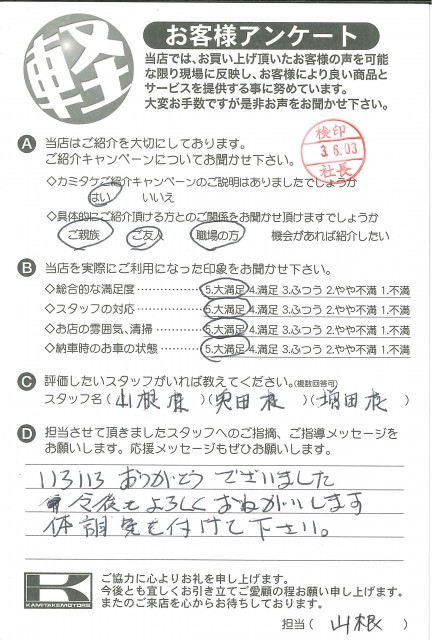 軽
お客様アンケート
当店では、お買い上げ頂いたお客様の声を可能
な限り現場に反映し、お客様により良い商品と
サービスを提供する事に努めています。
大変お手数ですが是非お声をお聞かせ下さい。
検印
3.6.03
社長
A 当店はご紹介を大切にしております。
ご紹介キャンペーンについてお聞かせ下さい。
◇カミタケご紹介キャンペーンのご説明はありましたでしょうか
はい いいえ
◇具体的にご紹介頂ける方とのご関係をお聞かせ頂けますでしょうか
ご親族 ご友人 職場の方 機会があれば紹介したい
B 当店を実際にご利用になった印象をお聞かせ下さい。
◇総合的な満足度 5.大満足 4.満足 3.ふつう 2.やや不満 1.不満
◇スタッフの対応 5.大満足 4.満足 3.ふつう 2.やや不満 1.不満
◇お店の雰囲気、清掃 5.大満足 4.満足 3.ふつう 2.やや不満 1.不満
◇納車時のお車の状態 5.大満足 4.満足 3.ふつう 2.やや不満 1.不満
C 評価したいスタッフがいれば教えてください。(複数回答可)
スタッフ名(山根様)( 田様)(増田様)
D 担当させて頂きましたスタッフへのご指摘、ご指導メッセージを
お願いします。応援メッセージもぜひお願いします。
いろいろありがとうございました
今後もよろしくおねがいします
体調気を付けて下さい。
K
KAMITAKEMOTORS
ご協力に心よりお礼を申し上げます。
今後とも宜しくお引き立てご愛顧の程お願い申し上げます。
またのご来店を心からお待ちしております。
担当(山根)